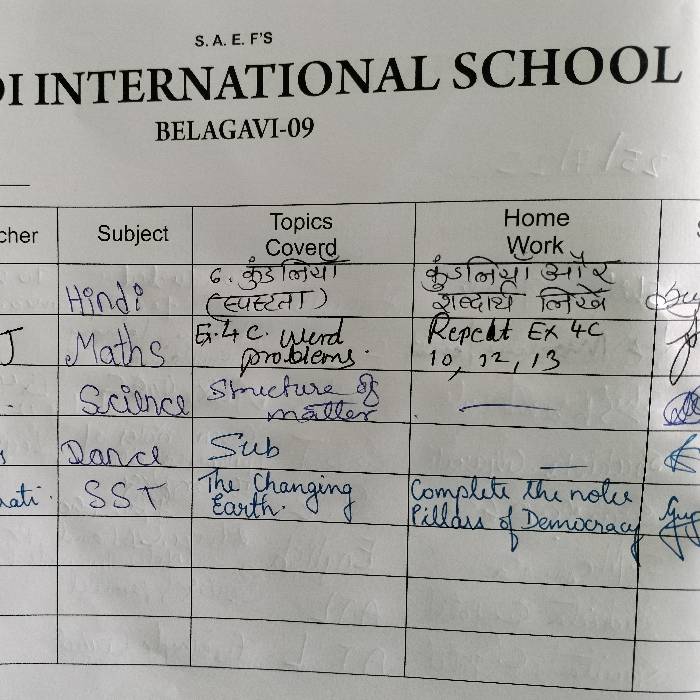 S. A. E. F'S
DI INTERNATIONAL SCHOOL
BELAGAVI-09
cher Subject Topics Coverd Home Work
Hindi 6. कुंडलिया कुंडलिया और
(स्पष्टता) शब्दार्थ लिखें
J Maths Ex. 4 C. Word Repeat Ex 4C
problems. 10, 12, 13
Science Structure of
matter
Dance Sub
ati. SST The Changing Complete the note
Earth. Pillars of Democracy